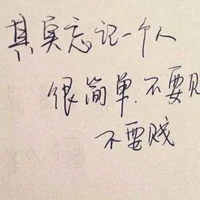 其实忘记一个人
很简单.不要见
不要贱